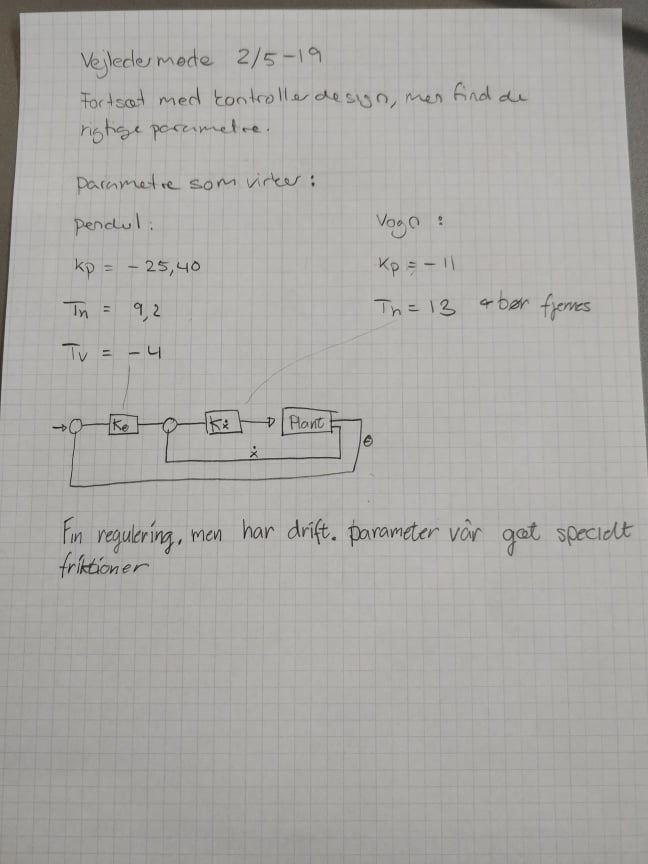 Vejledermøde 2/5-19
Fortsæt med kontrollerdesign, men find de
rigtige parametre.
parametre som virker:
pendul:
Kp = -25,40
Tn = 9,2
Tv = -4
Vogn:
Kp = -11
Tn = 13 ← bør fjernes
Kθ
Kẋ
Plant
θ
ẋ
Fin regulering, men har drift. parameter vår gæt specielt
friktioner